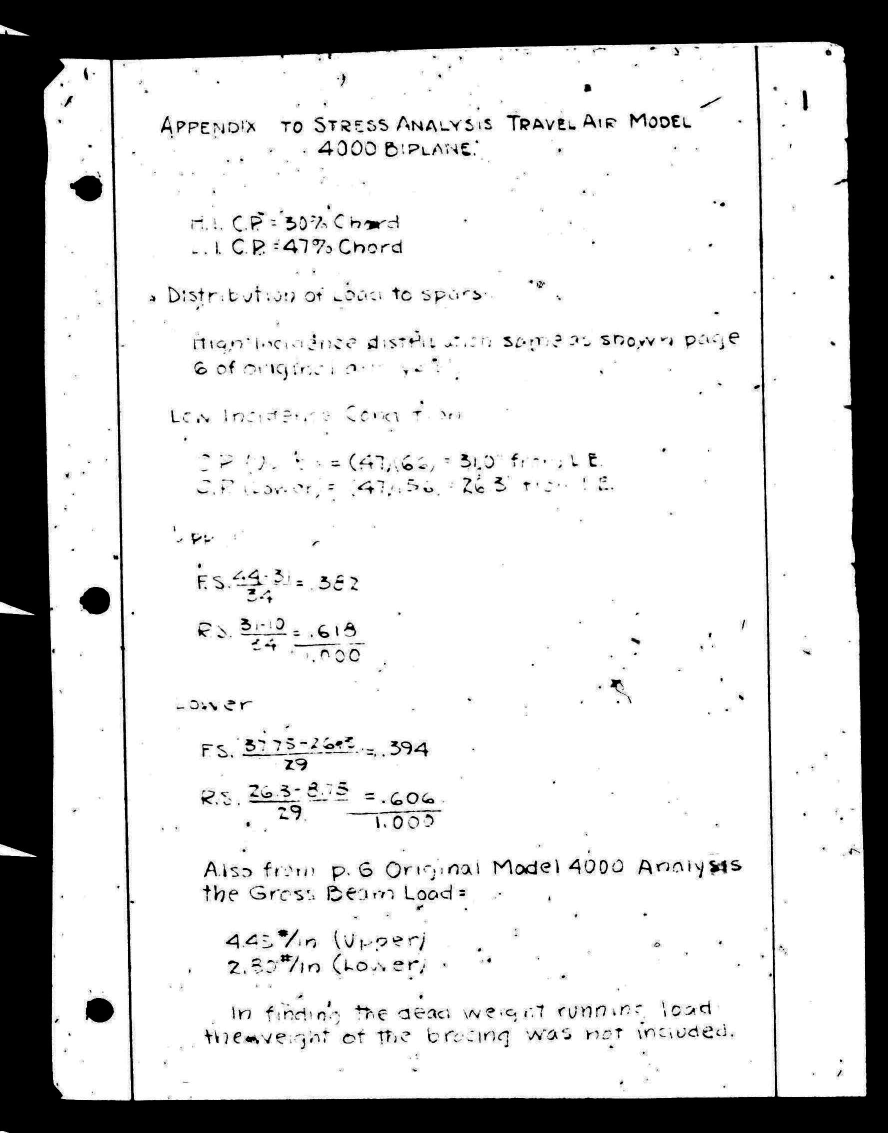 1
APPENDIX TO STRESS ANALYSIS TRAVEL AIR MODEL
4000 BIPLANE.
H.I. C.P. = 30% Chord
L.I. C.P. = 47% Chord
Distribution of Load to spars
High Incidence distribution same as shown page
6 of original analysis
Low Incidence Condition
C.P. = (.47)(66) = 31.0" from L.E.
C.P. (Lower) = (.47)(56) = 26.3" from L.E.
Upper
F.S. 44-31/34 = .382
R.S. 31-10/34 = .618
1.000
Lower
F.S. 37.75-26.3/29 = .394
R.S. 26.3-8.75/29 = .606
1.000
Also from p. 6 Original Model 4000 Analysis
the Gross Beam Load =
#/in (Upper)
#/in (Lower)
In finding the dead weight running load
the weight of the bracing was not included.